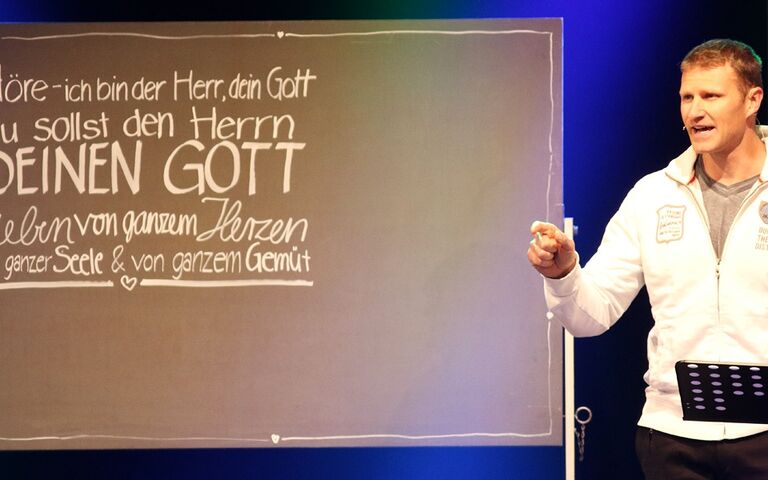 Höre - ich bin der Herr, dein Gott
Du sollst den Herrn
DEINEN GOTT
lieben von ganzem Herzen
ganzer Seele & von ganzem Gemüt